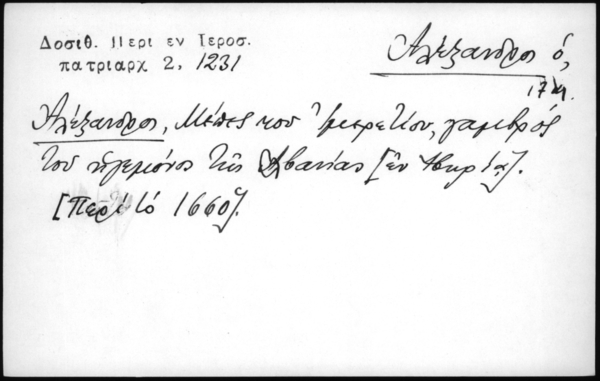 Δοσιθ. Περι εν Ιεροσ.
πατριαρχ 2, 1231
Ἀλέξανδρος ὁ,
17
Ἀλέξανδρος, Μέπες του Ἰμερετίου, γαμβρός
τοῦ ἡγεμόνος τῆς Ἀβανίας [ἐν Ἰβηρίᾳ].
[Περὶ τὸ 1660].